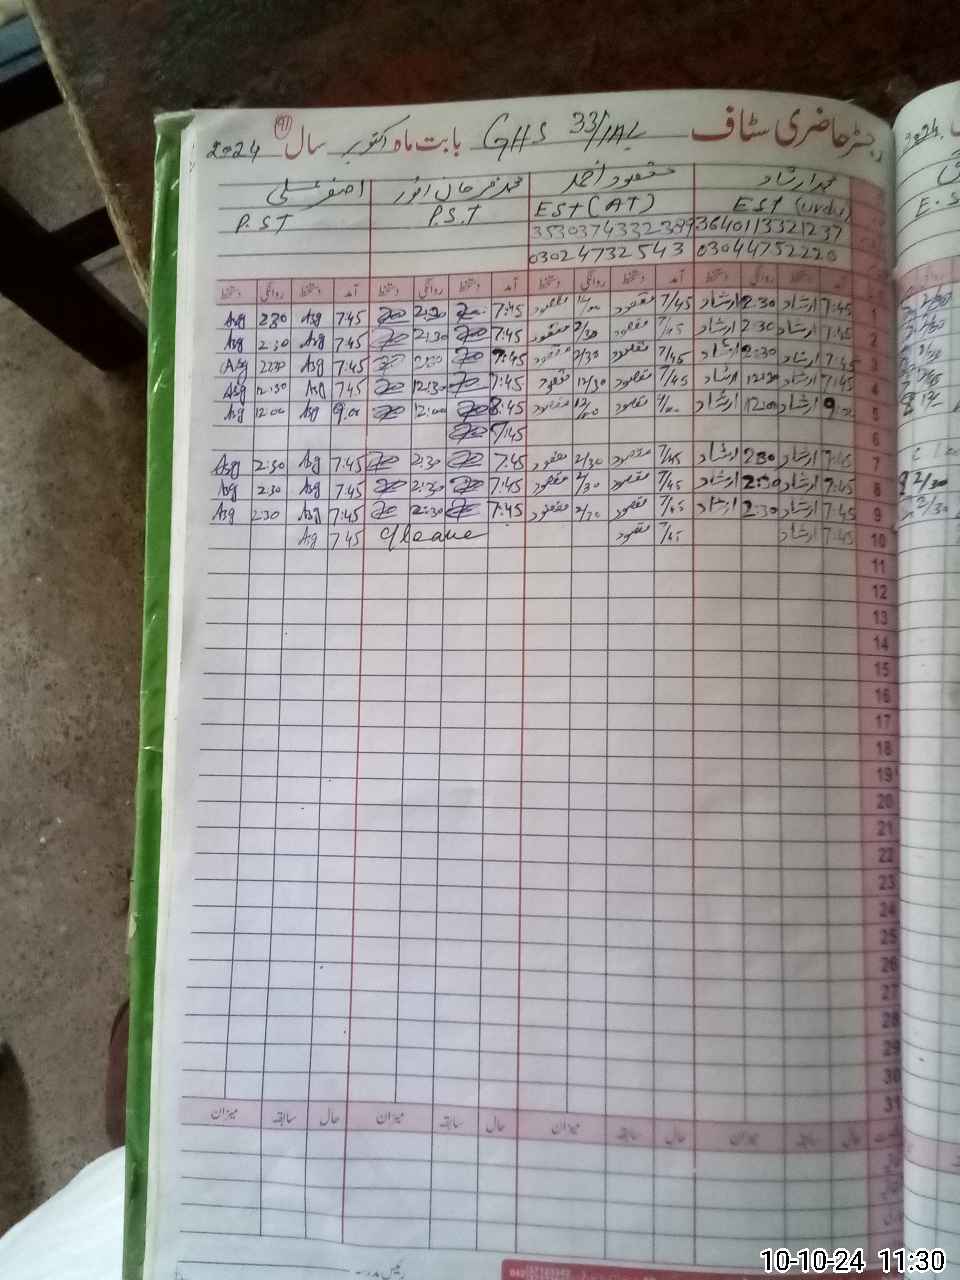 رجسٹر حاضری سٹاف GHS 33/1AL بابت ماہ اکتوبر سال 2024
محمد ارشاد مقصود احمد محمد فرحان انور اصغر علی
EST (urdu) EST (AT) P.S.T P.ST
3640113321237
03044752220 03024732543
آمد دستخط روانگی دستخط آمد دستخط روانگی دستخط آمد دستخط روانگی دستخط آمد دستخط روانگی دستخط
1 7:45 ارشاد 2:30 ارشاد 7/45 مقصود مقصود 7:45 2:30 7:45 Asg 2:30 Asg
2 7:45 ارشاد 2:30 ارشاد 7/45 مقصود 2/30 مقصود 7:45 2:30 7:45 Asg 2:30 Asg
3 7:45 ارشاد 2:30 ارشاد 7/45 مقصود 2/30 مقصود 7:45 2:30 7:45 Asg 2:30 Asg
4 7:45 ارشاد 12:30 ارشاد 7/45 مقصود 12/30 مقصود 7:45 12:30 7:45 Asg 12:30 Asg
5 9:00 ارشاد 12:00 ارشاد مقصود 12/00 مقصود 8:45 12:00 9:00 Asg 12:00 Asg
6 7:45
7 7:45 ارشاد 2:30 ارشاد 7/45 مقصود 2/30 مقصود 7:45 2:30 7:45 Asg 2:30 Asg
8 7:45 ارشاد 2:30 ارشاد 7/45 مقصود 2/30 مقصود 7:45 2:30 7:45 Asg 2:30 Asg
9 7:45 ارشاد 2:30 ارشاد 7/45 مقصود 2/30 مقصود 7:45 2:30 7:45 Asg 2:30 Asg
10 7:45 ارشاد 7/45 مقصود leave 7:45 Asg
11
12
13
14
15
16
17
18
19
20
21
22
23
24
25
26
27
28
29
30
31
حال سابقہ میزان حال سابقہ میزان حال سابقہ میزان حال سابقہ میزان
رئیس مدرسہ
10-10-24 11:30